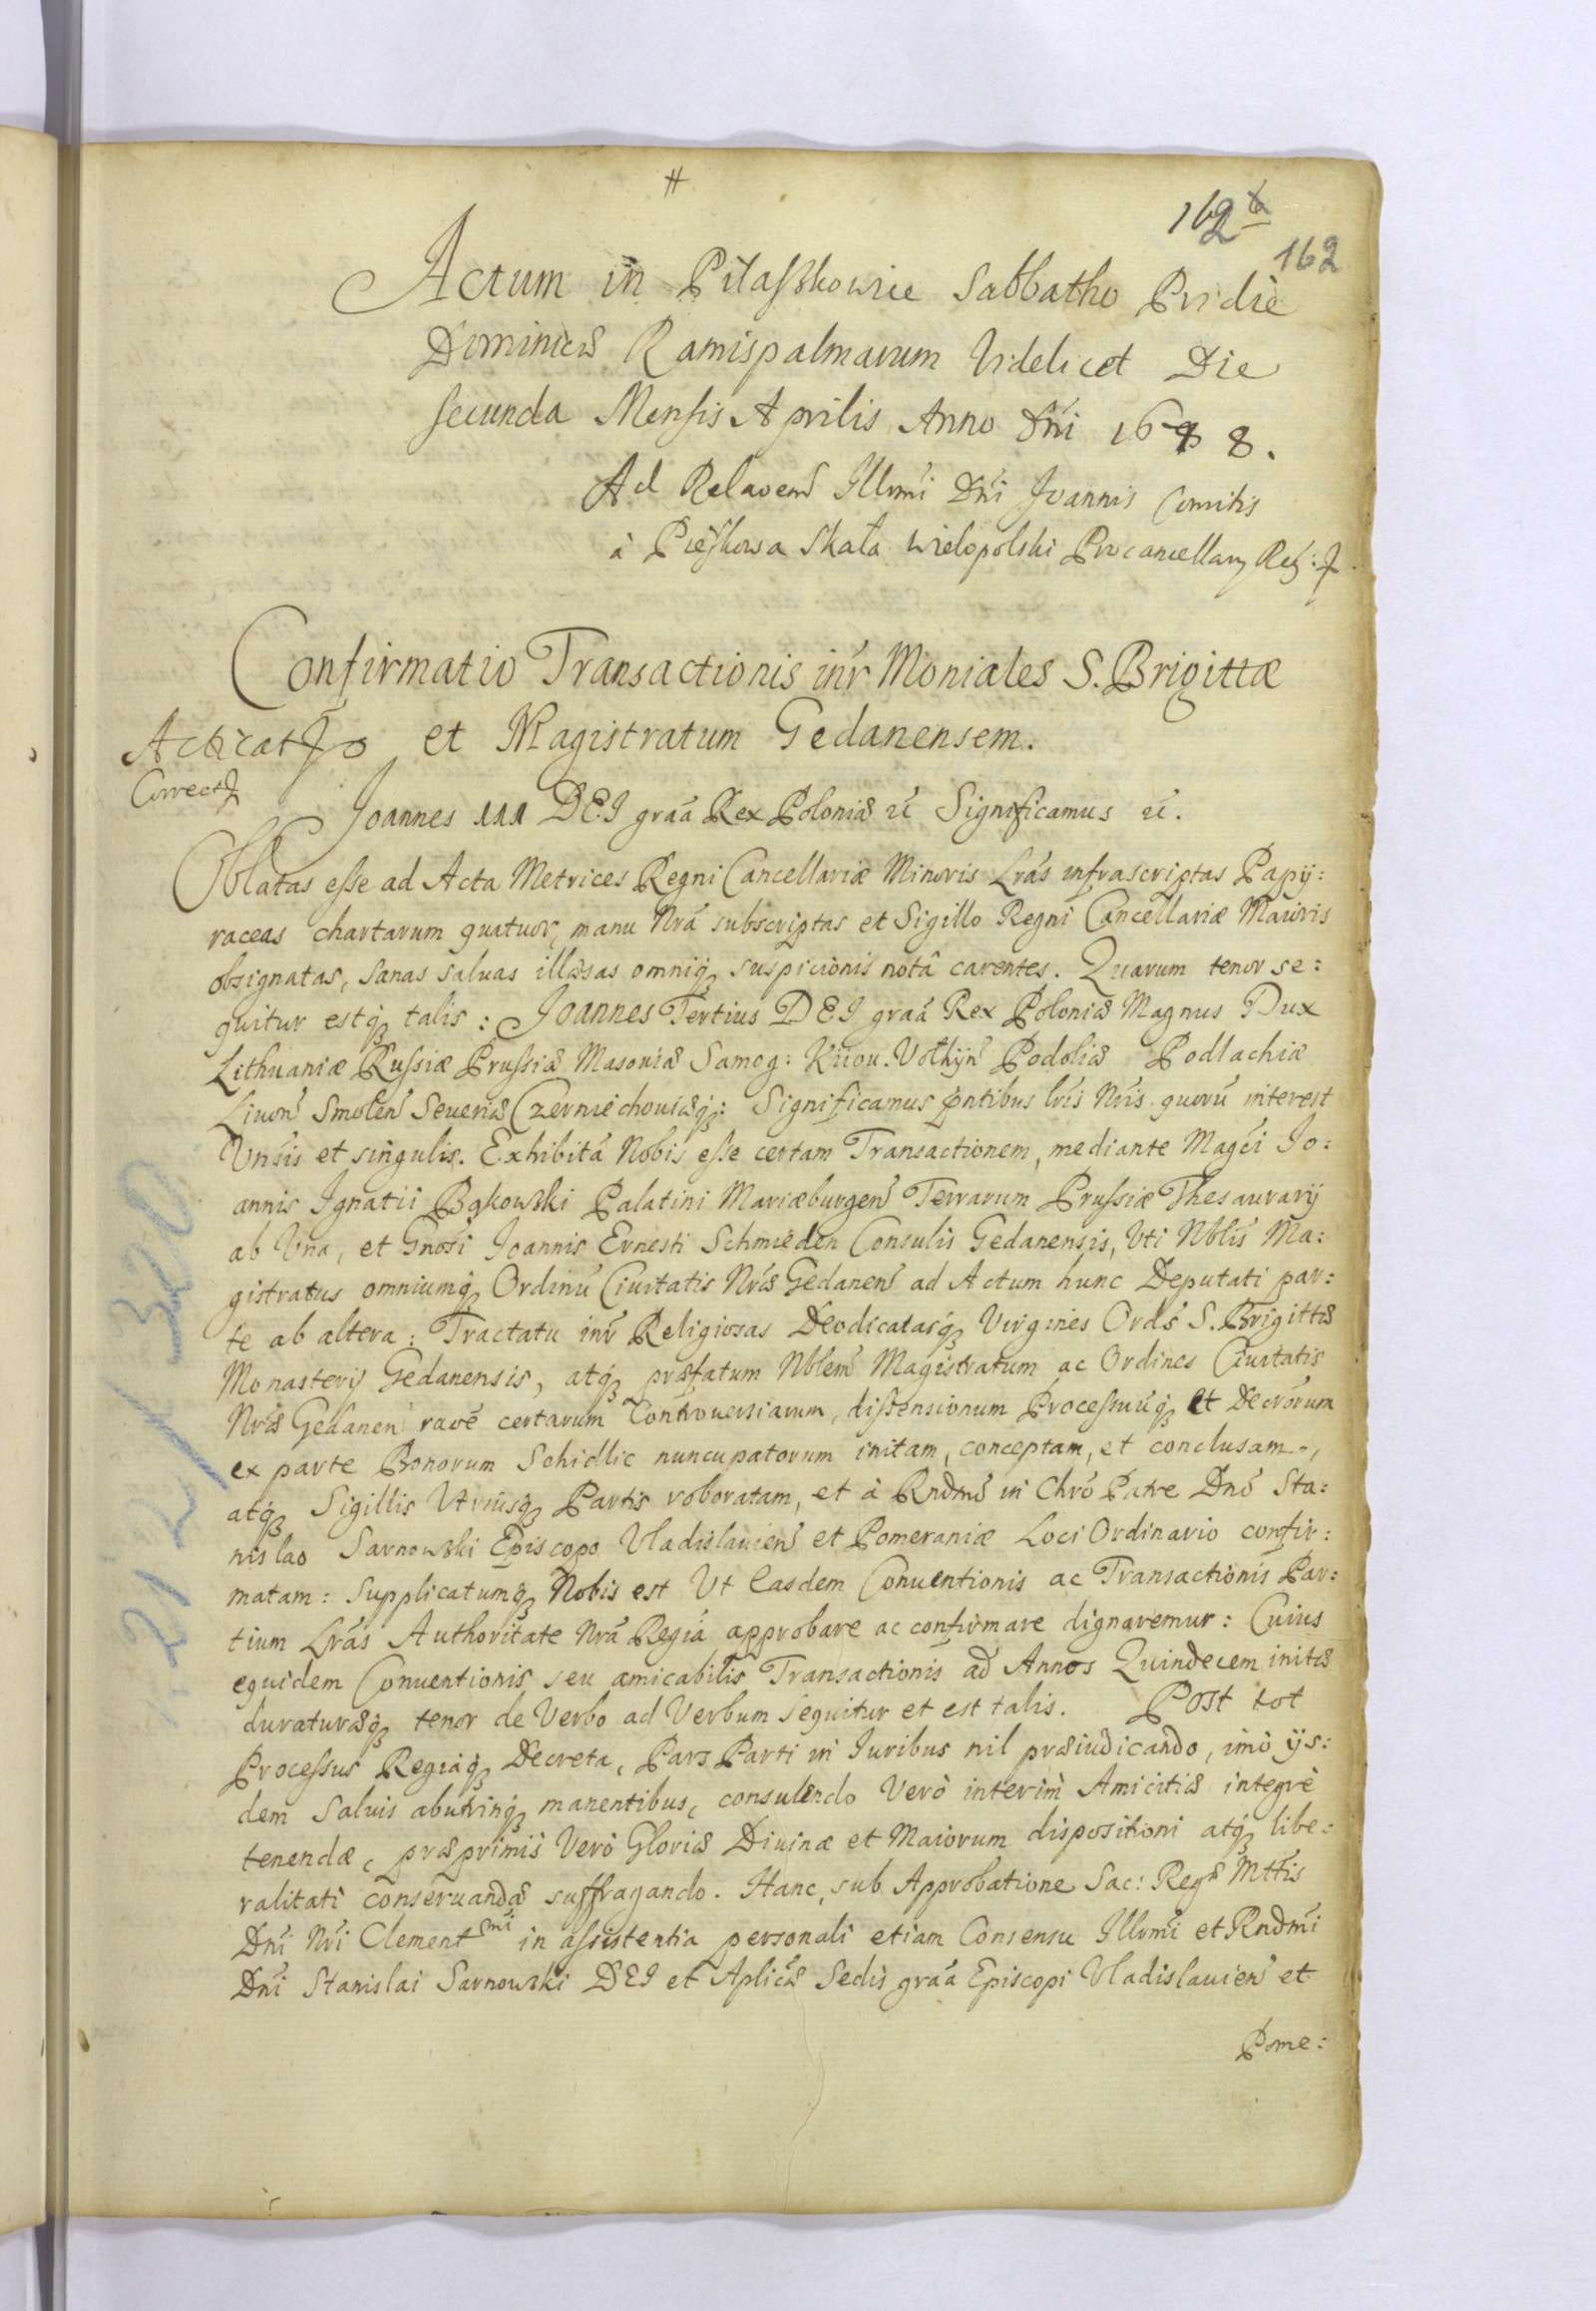 #
162 a
162
Actum in Pilaßkowice Sabbatho Pridie
Dominicæ Ramispalmarum Videlicet Die
secunda Mensis Aprilis Anno Dñi 1678.
Ad Relaõem Illrmi Dñi Joannis Comitis
à Pieskowa Skała Wielopolski Procancellarij Reg:
Confirmatio Transactionis inr̃ Moniales S. Brigittæ
et Magistratum Gedanensem.
Acticat
Correct
Joannes III DEI graã Rex Poloniæ ꝛc̃ Significamus ꝛc̃.
Oblatas esse ad Acta Metrices Regni Cancellariæ Minoris Lrãs infrascriptas Papy:
raceas chartarum quatuor, manu Nrã subscriptas et Sigillo Regni Cancellariæ Maioris
obsignatas, sanas saluas illæsas omniq; suspicionis notâ carentes. Quarum tenor se:
quitur estq; talis: Joannes Tertius DEI graã Rex Poloniæ Magnus Dux
Lithuaniæ Russiæ Prussiæ Masouiæ Samog: Kijou. Volhyñ Podoliæ Podlachiæ
Liuoñ Smoleñ Seueriæ Czerniechouiæq;: Significamus pñtibus lris̃ Nris̃ quorũ interest
Vnĩsis et singulis. Exhibitã Nobis esse certam Transactionem, mediante Magc̃i Jo:
annis Ignatii Bąkowski Palatini Mariæburgeñ Terrarum Prussiæ Thesaurarij
ab Vna, et Gnosi Joannis Ernesti Schmieden Consulis Gedanensis, Vti Nblis̃ Ma:
gistratus omniumq; Ordinũ Ciuitatis Nræ̃ Gedaneñ ad Actum hunc Deputati par:
te ab altera: Tractatu inr̃ Religiosas Deodicatasq; Virgines Ordis̃ S. Brigittæ
Monasterij Gedanensis, atq; præfatum Nblem̃ Magistratum ac Ordines Ciuitatis
Nræ̃ Gedaneñ raõe certarum Controuersiarum, dissensionum Processuũq; et Decrõrum
ex parte Bonorum Schidlic nuncupatorum initam, conceptam, et conclusam,
atq; Sigillis Vtriusq; Partis roboratam, et à Rndmõ in Chrõ Patre Dnõ Sta:
nislao Sarnowski Episcopo Vladislauieñ et Pomeraniæ Loci Ordinario confir:
matam: Supplicatumq; Nobis est Vt Easdem Conuentionis ac Transactionis Par:
tium Lrãs Authoritate Nrã Regiâ approbare ac confirmare dignaremur: Cuius
equidem Conuentionis seu amicabilis Transactionis ad Annos Quindecem initæ
duraturæq; tenor de Verbo ad Verbum sequitur et est talis. Post tot
Processus Regiaq; Decreta, Pars Parti in Iuribus nil præiudicando, imò ijs:
dem saluis abutrinq; manentibus, consulendo Verò interim Amicitiæ integrè
tenendæ, præprimis Verò Gloriæ Diuinæ et Maiorum dispositioni atq; libe:
ralitati conseruandæ suffragando. Hanc, sub Approbatione Sac: Regæ Mttis
Dñi Nri Clementmi in assistentia personali etiam Consensu Illrmi et Rndmi
Dñi Stanislai Sarnowski DEI et Aplicæ̃ Sedis graã Episcopi Vladislauieñ et
Pome: